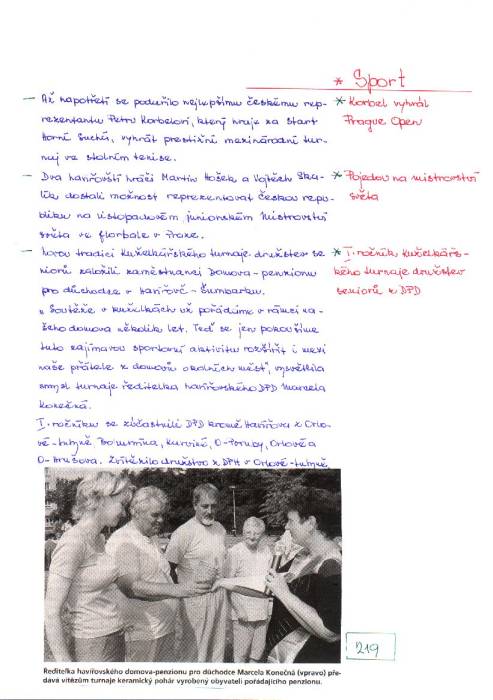 * Sport
— Až napotřetí se podařilo nejlepšímu českému rep-
rezentantu Petru Korbelovi, který hraje za Start
Horní Suchá, vyhrát prestižní mezinárodní tur-
naj ve stolním tenise.
* Korbel vyhrál
Prague Open
— Dva havířovští hráči Martin Hošek a Vojtěch Ska-
lík dostali možnost reprezentovat českou repu-
bliku na listopadovém juniorském Mistrovství
světa ve florbale v Praze.
* Pojedou na mistrovství
světa
— Novou tradici Kuželkářského turnaje družstev se-
niorů založili zaměstnanci Domova-penzionu
pro důchodce v Havířově - Šumbarku.
* I. ročník Kuželkářs-
kého turnaje družstev
seniorů z DPD
„Soutěže v kuželkách už pořádáme v rámci na-
šeho domova několik let. Teď se jen pokoušíme
tuto zajímavou sportovní aktivitu rozšířit i mezi
naše přátele z domovů okolních měst", vysvětlila
smysl turnaje ředitelka havířovského DPD Marcela
Konečná.
I. ročníku se zúčastnili DPD kromě Havířova z Orlo-
vé-Lutyně, Bohumína, Karviné, O-Poruby, Orlové a
O-Hrušova. Zvítězilo družstvo z DPH v Orlové-Lutyně
219
Ředitelka havířovského domova-penzionu pro důchodce Marcela Konečná (vpravo) pře-
dává vítězům turnaje keramický pohár vyrobený obyvateli pořádajícího penzionu.